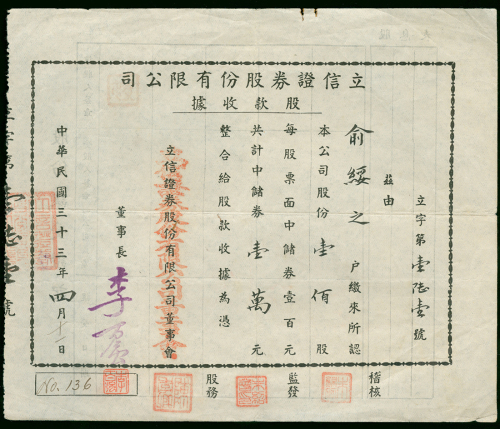 立信證券股份有限公司
股款收據
立字第壹陸壹號
茲由
俞綏之 戶繳來所認
本公司股份壹佰股
每股票面中儲券壹百元
共計中儲券壹萬元
整合給股款收據為憑
立信證券股份有限公司董事會
董事長 李
中華民國三十三年四月十一日
稽核
監發
股務
No. 136